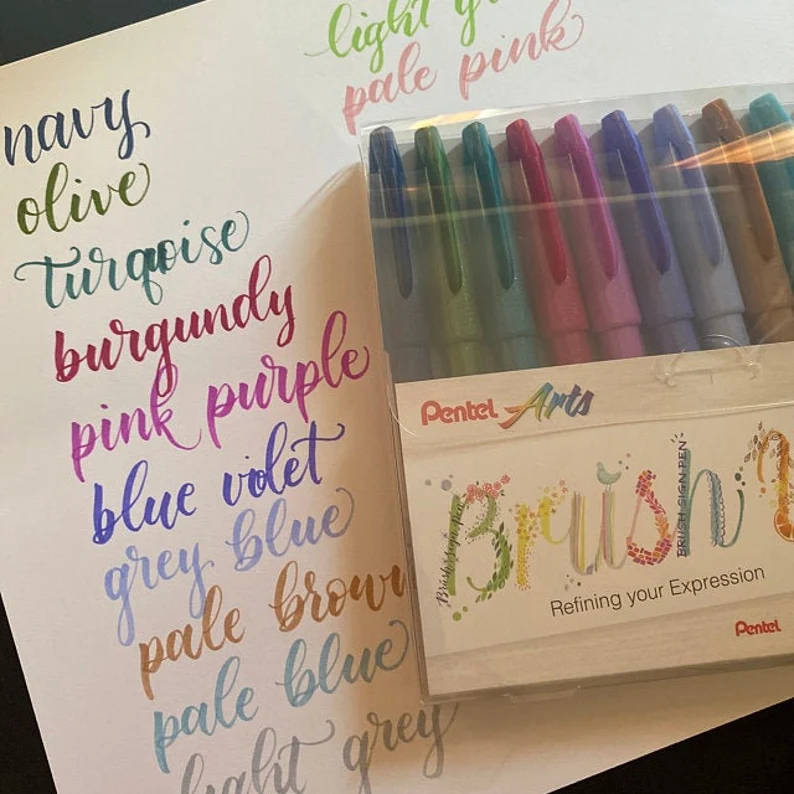 light
pale pink
navy
olive
turqoise
burgundy
pink purple
blue violet
grey blue
pale brown
pale blue
light grey
Pentel Arts
Brush
Brush sign pen
BRUSH SIGN PEN
Refining your Expression
Pentel